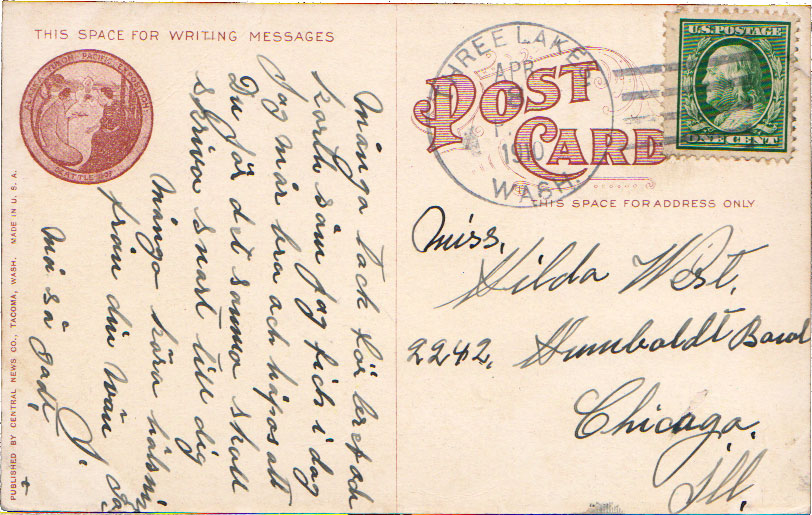 THIS SPACE FOR WRITING MESSAGES
ALASKA YUKON PACIFIC EXPOSITION
SEATTLE 1909
PUBLISHED BY CENTRAL NEWS CO., TACOMA, WASH. MADE IN U. S. A.
många tack för bref och
korth såm jag fick i dag
Jag mår bra och håpos att
Du gör det samma skall
skriva snart till dig
många kära hälsni
från din wän
må så godt
POST
CARD
THREE LAKES
APR
1910
WASH.
U.S. POSTAGE
ONE CENT
THIS SPACE FOR ADDRESS ONLY
Miss,
Hilda West,
2242, Humboldt
Chicago,
Ill.